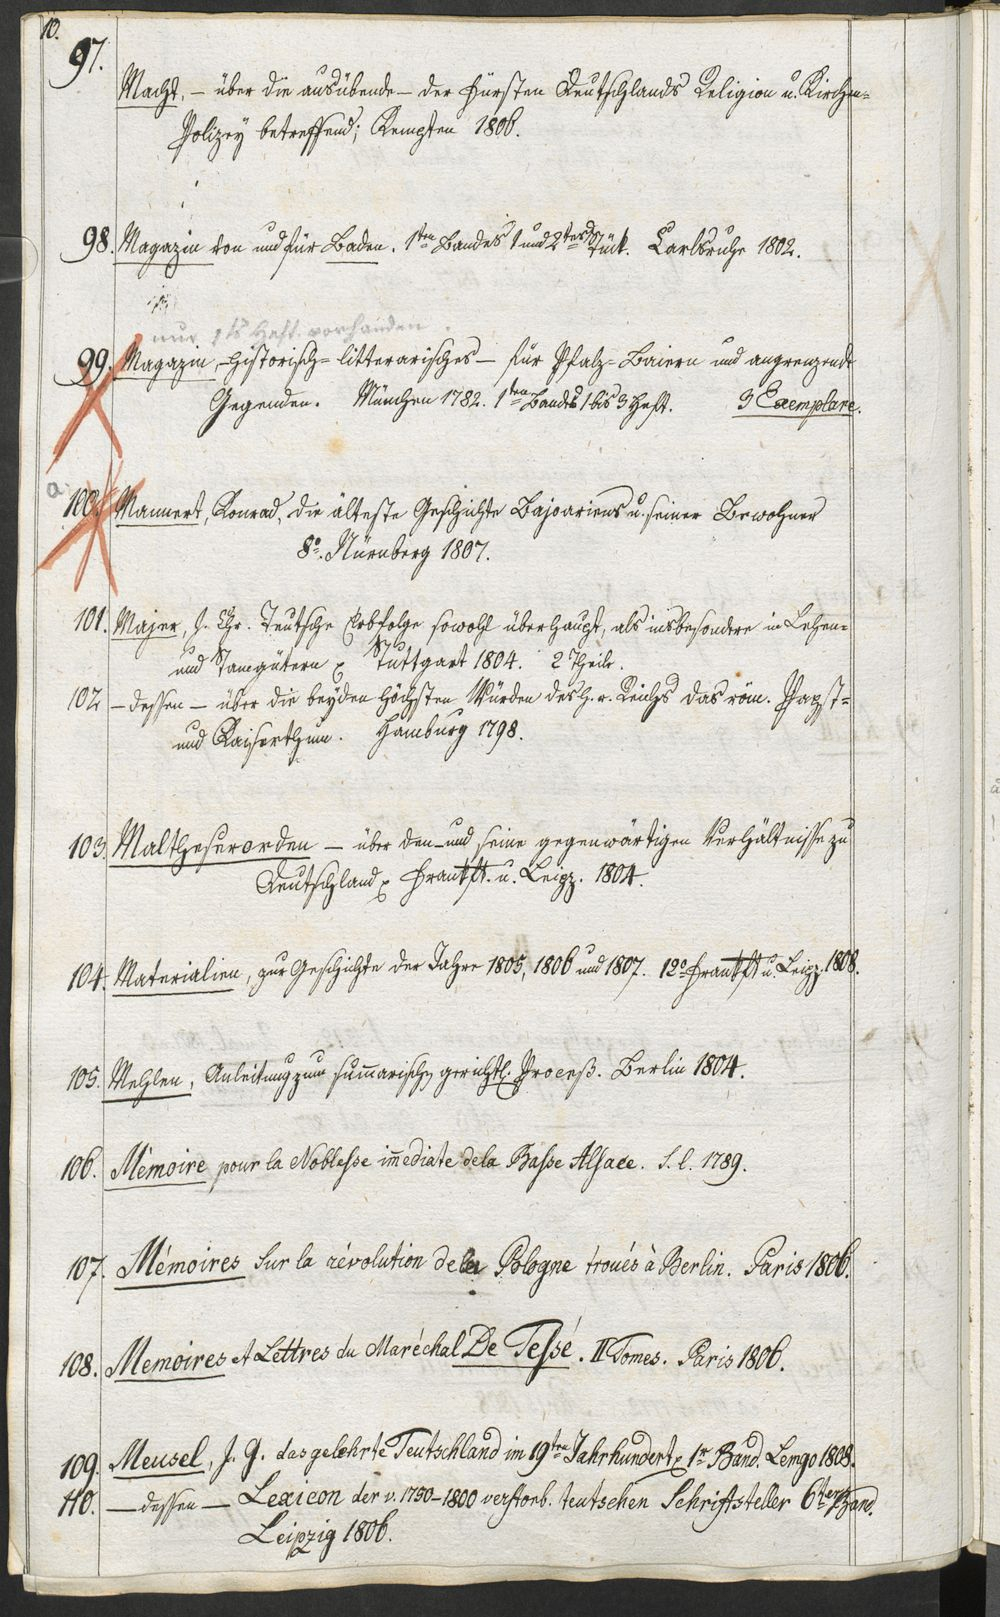 10.
97.
Macht, – über die ausübende – der Fürsten Deutschlands Religion u. Kirchen=
Polizey betreffend; Kempten 1806.
98. Magazin von und für Baden. 1ten Bandes 1 und 2tes Stück. Carlsruhe 1802.
nur 1ts Heft vorhanden.
99. Magazin, – historisch= litterarisches – für Pfalz=Baiern und angrenzende
Gegenden. München 1782. 1ten Bandes 1 bis 3 Heft. 3 Exemplare.
a.
100. Mannert, Konrad, die älteste Geschichte Bajoariens u. seiner Bewohner
8o. Nürnberg 1807.
101. Majer, J. Chr. Teutsche Erbfolge sowohl überhaupt, als insbesondere in Lehen=
und Stamgütern Stuttgart 1804. 2 Theile.
102. – dessen – über die beyden höchsten Würden des h. r. Reichs das röm. Papst=
und Kaiserthum. Hamburg 1798.
103. Maltheserorden – über den – und seine gegenwärtigen Verhältnisse zu
Deutschland Frankft. u. Leipz. 1804.
104. Materialien, zur Geschichte der Jahre 1805, 1806 und 1807. 12o Frankft u. Leipz. 1808.
105. Mehlen, Anleitung zum sum̄arischen gerichtl. Proceß. Berlin 1804.
106. Mémoire pour la Noblesse im̄ediate de la Basse Alsace. S. l. 1789.
107. Mémoires sur la révolution de la Pologne trouvés à Berlin. Paris 1806.
108. Memoires et Lettres du Maréchal De Tessé. II Tomes. Paris 1806.
109. Meusel, J. G. das gelehrte Teutschland im 19ten Jahrhundert 1r Band. Lemgo 1808.
110. – dessen – Lexicon der v. 1750–1800 verstorb. teutschen Schriftsteller 6ter Band.
Leipzig 1806.